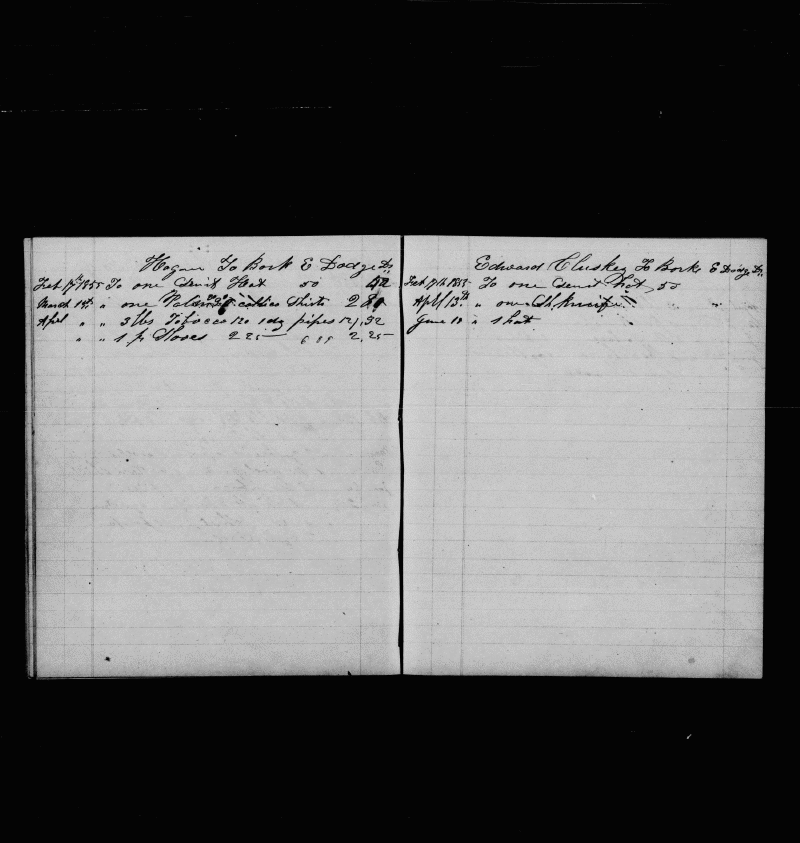 Hogan To Bark E Dodge Dr
Feb 17th 1855 To one Hat 50 50
March 18th " one calico Shirts 2 80
April " " 3 lbs Tobacco 120 1 dz pipes 12 1,32
" " 1 pr Shoes 2 25 6 89 2,25
Edward Cluskey To Bark E Dodge Dr
Feb 17th 1855 To one Hat 50
April 13th " one knife " "
June 10 " 1 hat